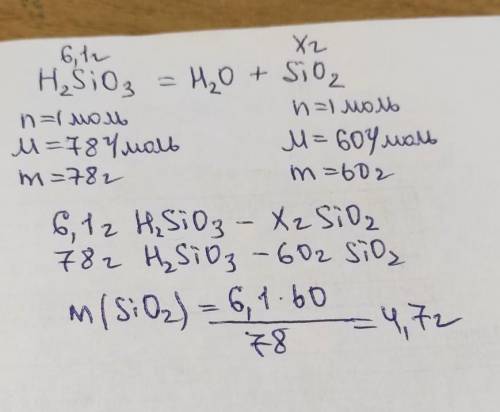 6,1г xг
H₂SiO₃ = H₂O + SiO₂
n=1моль n=1моль
M=78г/моль M=60г/моль
m=78г m=60г
6,1г H₂SiO₃ – xг SiO₂
78г H₂SiO₃ – 60г SiO₂
m(SiO₂) = 6,1·60 / 78 = 4,7г